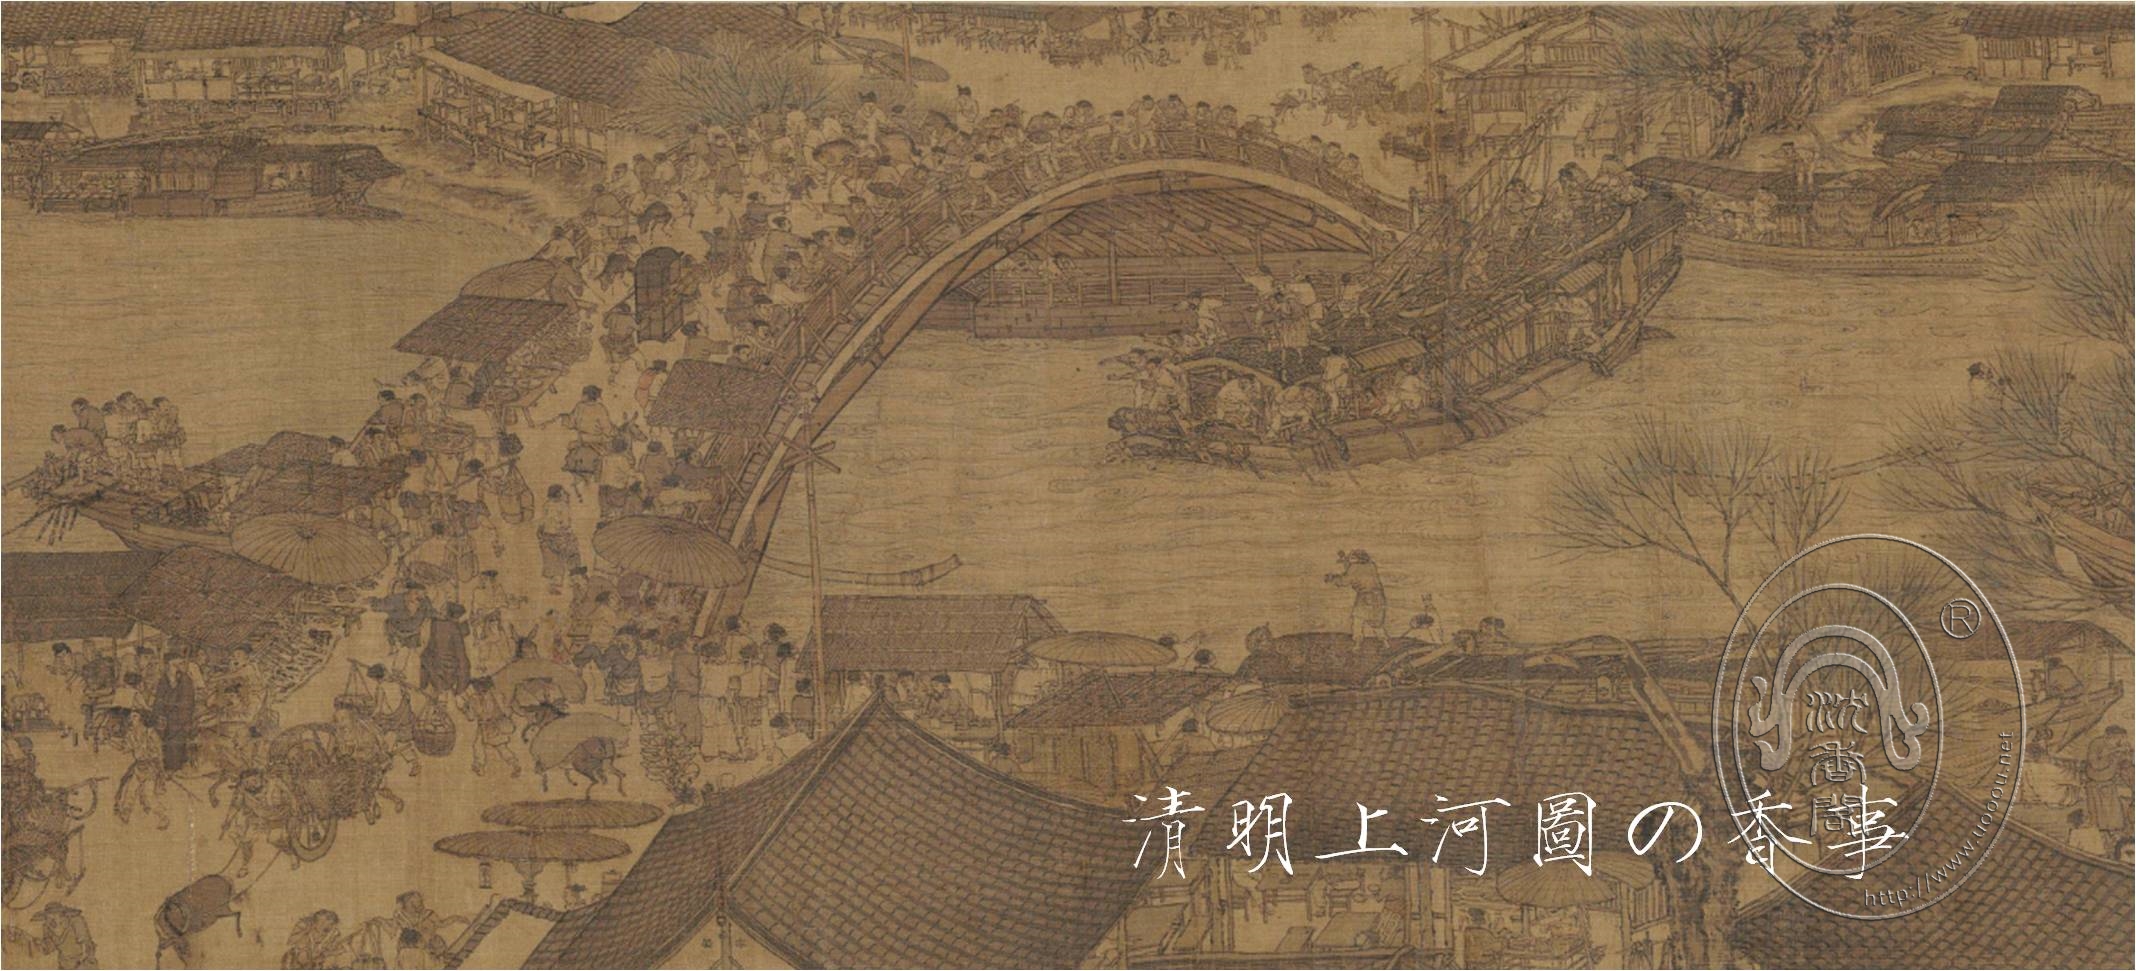 清明上河圖の香事
沈香閣
®
http://www.uooou.net